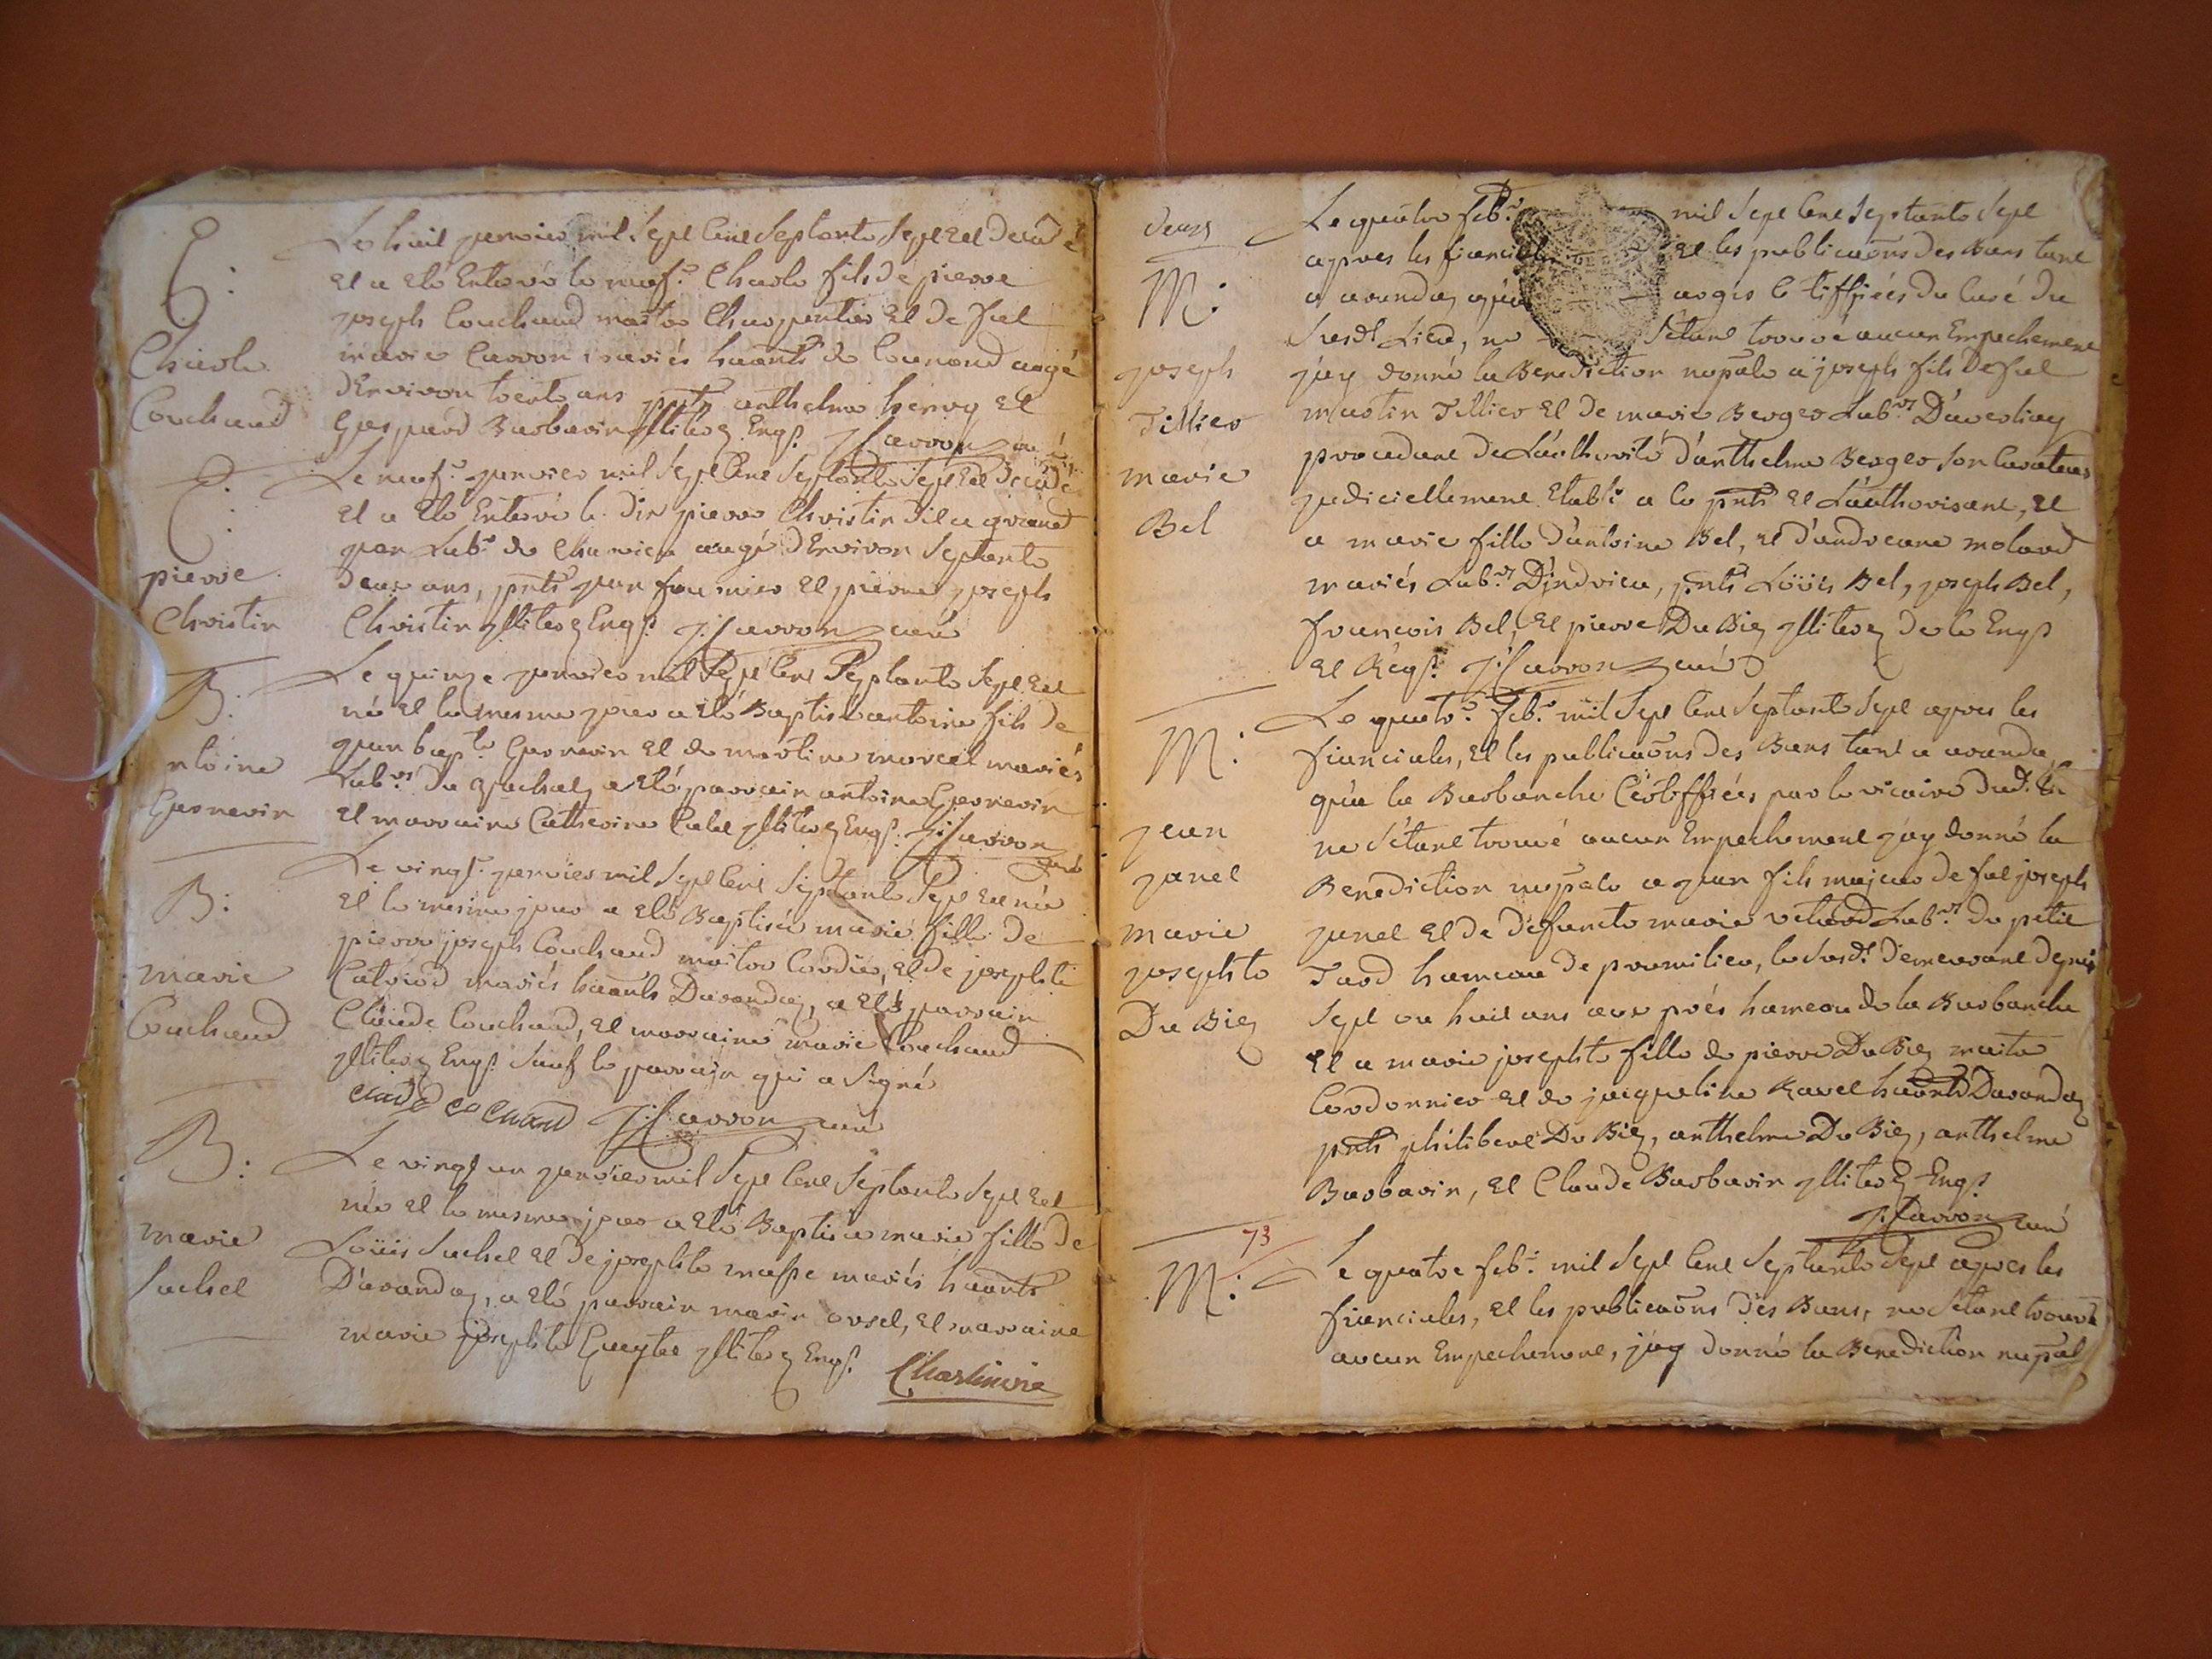 E:
Charle
Couchaud
Le huit janvier mil sept cent septante sept est decedé
et a eté enterré le neuf.e Charle fils de pierre
joseph Couchaud maitre Charpentier et de fut
marie Carron mariés haants de Cognoud aagé
d'Environ trente ans pnts anthelme hervoy et
Gaspard Barbarin illiterez Enqs. J: Carron curé
E:
pierre
Christin
Le neuf.e janvier mil sept Cent septante sept est decedé
et a eté Enterré le dix pierre Christin dit a grand
jean Lab.r de aagé d'Environ septante
deux ans, pnts jean et pierre joseph
Christin illiterez Enqs. J: Carron curé
B:
ntoine
Gernevin
Le quinze janvier mil Sept Cent Septante Sept est
né et le mesme jour a eté Baptisé antoine fils de
jean bap.te Gernevin et de martine morcel mariés
Lab.rs du a eté parrain antoine Gernevin
et marraine Catherine illiterez Enqs. J: Carron
curé
B:
marie
Couchaud
Le vingt.e janvier mil Sept Cent Septante Sept est née
et le mesme jour a eté Baptisée marie fille de
pierre joseph Couchaud maitre Cordier, et de josephte
mariés haants Davandaz, a eté parrain
Claude Couchaud, et marraine marie Couchaud
illiterez Enqs. Sauf le parrain qui a signé
claude cochand J: Carron curé
B:
marie
Suchel
Le vingt un janvier mil Sept Cent Septante Sept est
née et le mesme jour a eté Baptisée marie fille de
Loüis Suchel et de josephte masse mariés haants
D'avandaz, a eté parrain marin orsel, et marraine
marie josephte illiterez Enqs.
Charlin
M:
joseph
Tillier
marie
Bel
Le quatre feb.r mil Sept Cent Septante Sept
apres les fiancialles et les publicaõns des Bans tant
a avandaz qu'a Cetiffiées du Curé du
Susd.t Lieu, ne s'etant trouvé aucun Empechement
j'ay donné la Benediction nupãle a joseph fils de fut
martin Tillier et de marie Berger Lab.rs
procedant de L'authorité d'anthelme Berger son Curateur
judiciellement Etabli a ce pnts et L'authorisant, et
a marie fille d'antoine Bel, et d'andreane molard
mariés Lab.rs D'jndrieu, pnts Loüis Bel, joseph Bel,
françois Bel, et pierre Du Biez illiterez de ce Enqs
et Reqs. J: Carron curé
M:
jean
janel
marie
josephte
Du Biez
Le quatr.e feb.r mil Sept Cent Septante Sept apres les
fiancialles, et les publicaõns des Bans tant a avandaz
qu'a la Barbanche Certiffiées par le vicaire dud.t Lieu
ne s'etant trouvé aucun Empechement j'ay donné la
Benediction nupãle a jean fils majeur de fut joseph
janel et de defuncte marie Lab.rs du petit
Tard hameau de premilieu, le susd.t demeurant depuis
Sept ou huit ans aux prés hameau de la Barbanche
et a marie josephte fille de pierre Du Biez maitre
Cordonnier et de jacqueline Ravet haants Davandaz
pnts philibert Du Biez, anthelme Du Biez, anthelme
Barbarin, et Claude Barbarin illiterez Enqs
J: Carron curé
73
M:
Le quatre feb.r mil Sept Cent Septante Sept apres les
fiancialles, et les publicaõns des Bans, ne s'etant trouvé
aucun Empechement, j'ay donné la Benediction nupãl